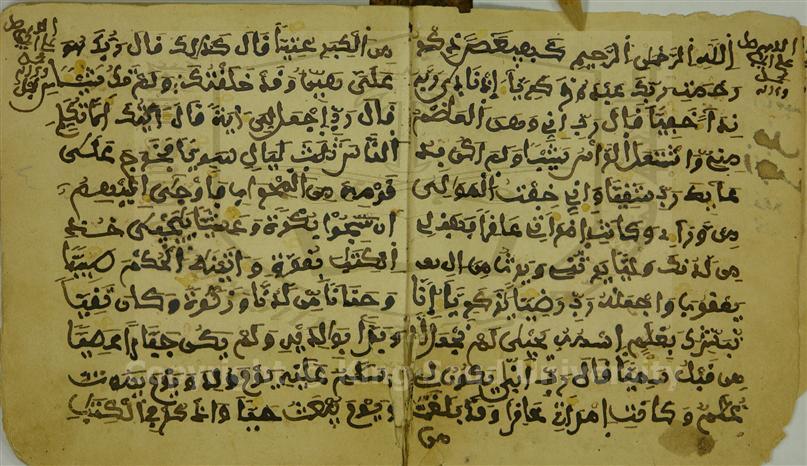 الله الرحمن الرحيم كهيعص ذكر
رحمت ربك عبده زكرياء إذ نادى ربه
نداء خفيا قال رب إني وهن العظم
مني واشتعل الرأس شيبا ولم أكن بد
عائك رب شقيا وإني خفت الموالي
من وراءى وكانت امرأتي عاقرا فهب لي
من لدنك وليا يرثني ويرث من ال
يعقوب واجعله رب رضيا يزكرياء إنا
نبشرك بغلم اسمه يحيى لم نجعل له
من قبل سميا قال رب أنى يكون لي
غلم وكانت امرأتي عاقرا وقد بلغت
من
من الكبر عتيا قال كذلك قال ربك هو
علي هين وقد خلقتك ولم تك شيئا
قال رب اجعل لي ءاية قال ءايتك الا تكلم
الناس ثلث ليال سويا فخرج على
قومه من المحراب فأوحى إليهم
أن سبحوا بكرة وعشيا ييحيى خذ
الكتب بقوة وءاتينه الحكم صبيا
وحنانا من لدنا وزكوة وكان تقيا
وبرا بوالديه ولم يكن جبارا عصيا
وسلم عليه يوم ولد ويوم يموت
ويوم يبعث حيا واذكر في الكتب
Copyright © King Saud University